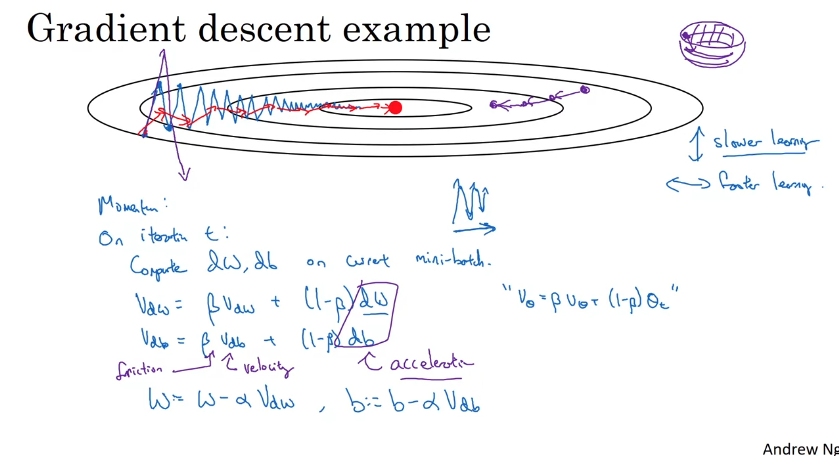 Gradient descent example
slower learning
faster learning.
Momentum:
On iteration t:
Compute dW, db on current mini-batch.
V_dw = β V_dw + (1-β) dW
"V_θ = β V_θ + (1-β) θ_t"
V_db = β V_db + (1-β) db
friction velocity acceleration
W := W - α V_dw , b := b - α V_db
Andrew Ng